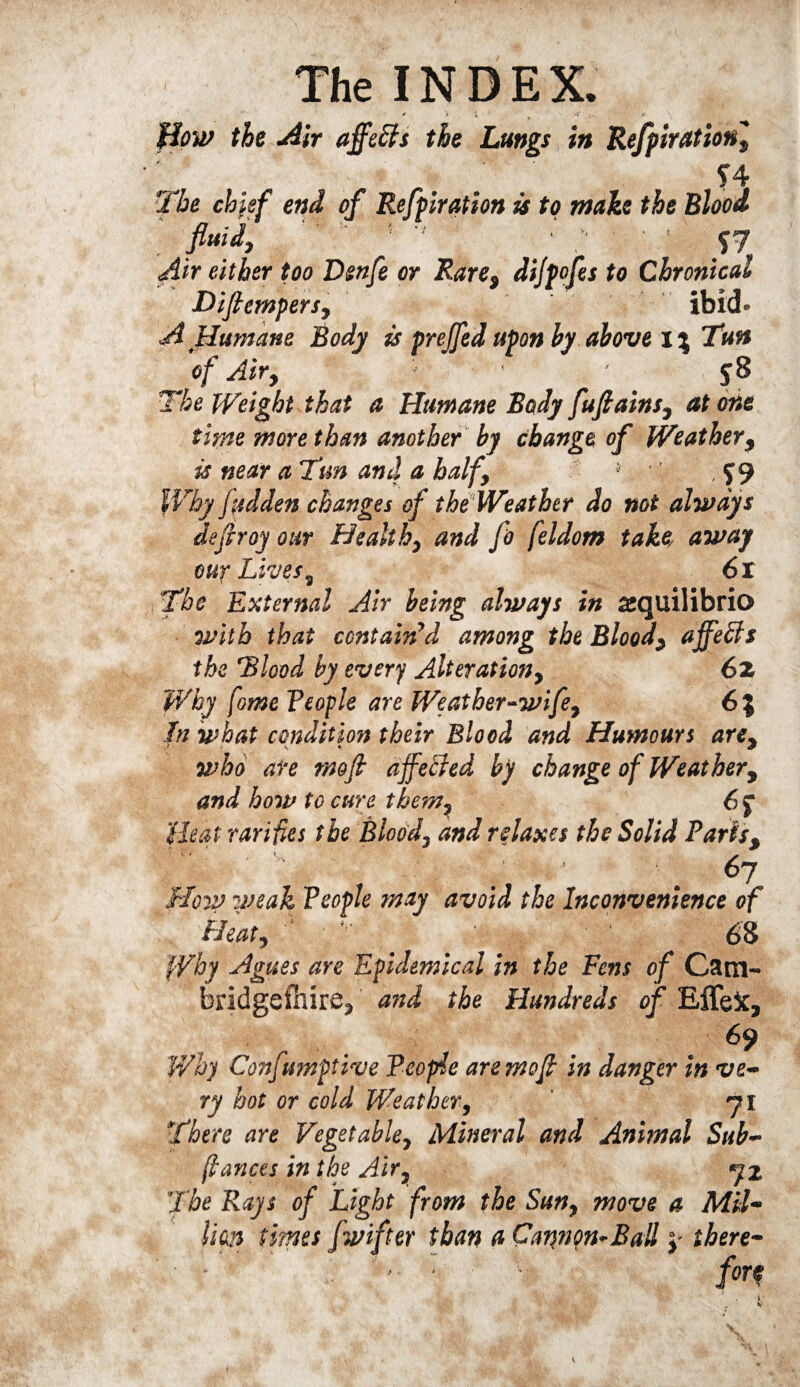 The INDEX.
How the Air affects the Lungs in Reſpiration,
54
The chief end of Reſpiration is to make the Blood
fluid, 57
Air either too Denſe or Rare, diſpoſes to Chronical
Diſtempers, ibid.
A Humane Body is preſſed upon by above 13 Tun
of Air, 58
The Weight that a Humane Body ſuſtains, at one
time more than another by change of Weather,
is near a Tun and a half, 59
Why ſudden changes of the Weather do not always
deſtroy our Health, and ſo ſeldom take away
our Lives, 61
The External Air being always in æquilibrio
with that contain'd among the Blood, affects
the Blood by every Alteration, 62
Why ſome People are Weather-wiſe, 63
In what condition their Blood and Humours are,
who are moſt affected by change of Weather,
and how to cure them, 65
Heat rarifies the Blood, and relaxes the Solid Parts,
67
How weak People may avoid the Inconvenience of
Heat, 68
Why Agues are Epidemical in the Fens of Cam-
bridgeſhire, and the Hundreds of Eſſex,
69
Why Conſumptive People are moſt in danger in ve-
ry hot or cold Weather, 71
There are Vegetable, Mineral and Animal Sub-
ſtances in the Air, 72
The Rays of Light from the Sun, move a Mil-
lion times ſwifter than a Cannon-Ball ; there-
fore